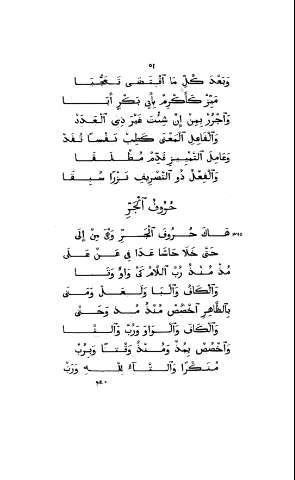 ٥١
وَبَعْدَ كُلِّ مَا اقْتَضَى تَعَجُّبَا
مَيِّزْ كَأَكْرِمْ بِأَبِي بَكْرٍ أَبَا
وَاجْرُرْ بِمِنْ إِنْ شِئْتَ غَيْرَ ذِي الْعَدَدْ
وَالْفَاعِلِ الْمَعْنَى كَطِبْ نَفْسًا تُفَدْ
وَعَامِلَ التَّمْيِيزِ قَدِّمْ مُطْلَقَا
وَالْفِعْلُ ذُو التَّصْرِيفِ نَزْرًا سُبِقَا
حُرُوفُ الْجَرِّ
هَاكَ حُرُوفَ الْجَرِّ وَهْيَ مِنْ إِلَى ٣٦٥
حَتَّى خَلَا حَاشَا عَدَا فِي عَنْ عَلَى
مُذْ مُنْذُ رُبَّ اللَّامُ كَيْ وَاوٌ وَتَا
وَالْكَافُ وَالْبَا وَلَعَلَّ وَمَتَى
بِالظَّاهِرِ اخْصُصْ مُنْذُ مُذْ وَحَتَّى
وَالْكَافَ وَالْوَاوَ وَرُبَّ وَالتَّا
وَاخْصُصْ بِمُذْ وَمُنْذُ وَقْتًا وَبِرُبْ
مُنَكَّرًا وَالتَّاءُ لِلّٰهِ وَرَبْ